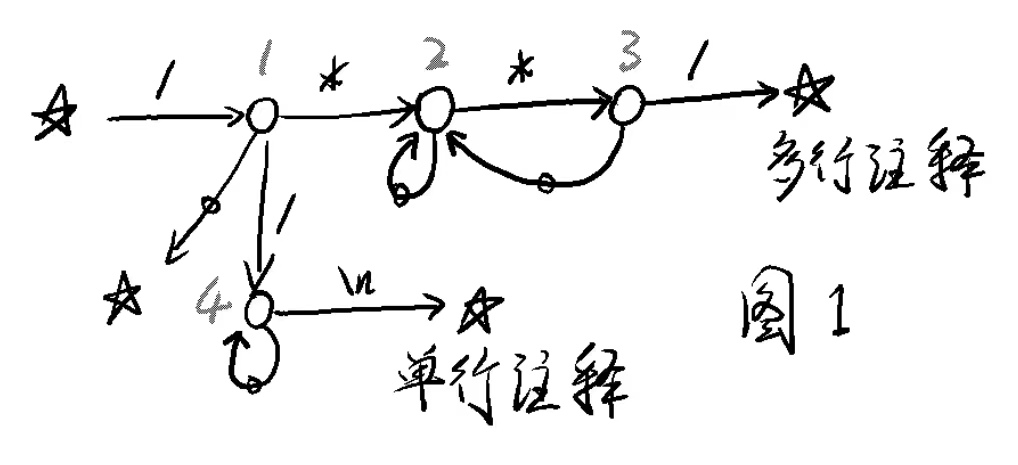 / 1 * 2 * 3 /
多行注释
/
4 \n
单行注释
图1